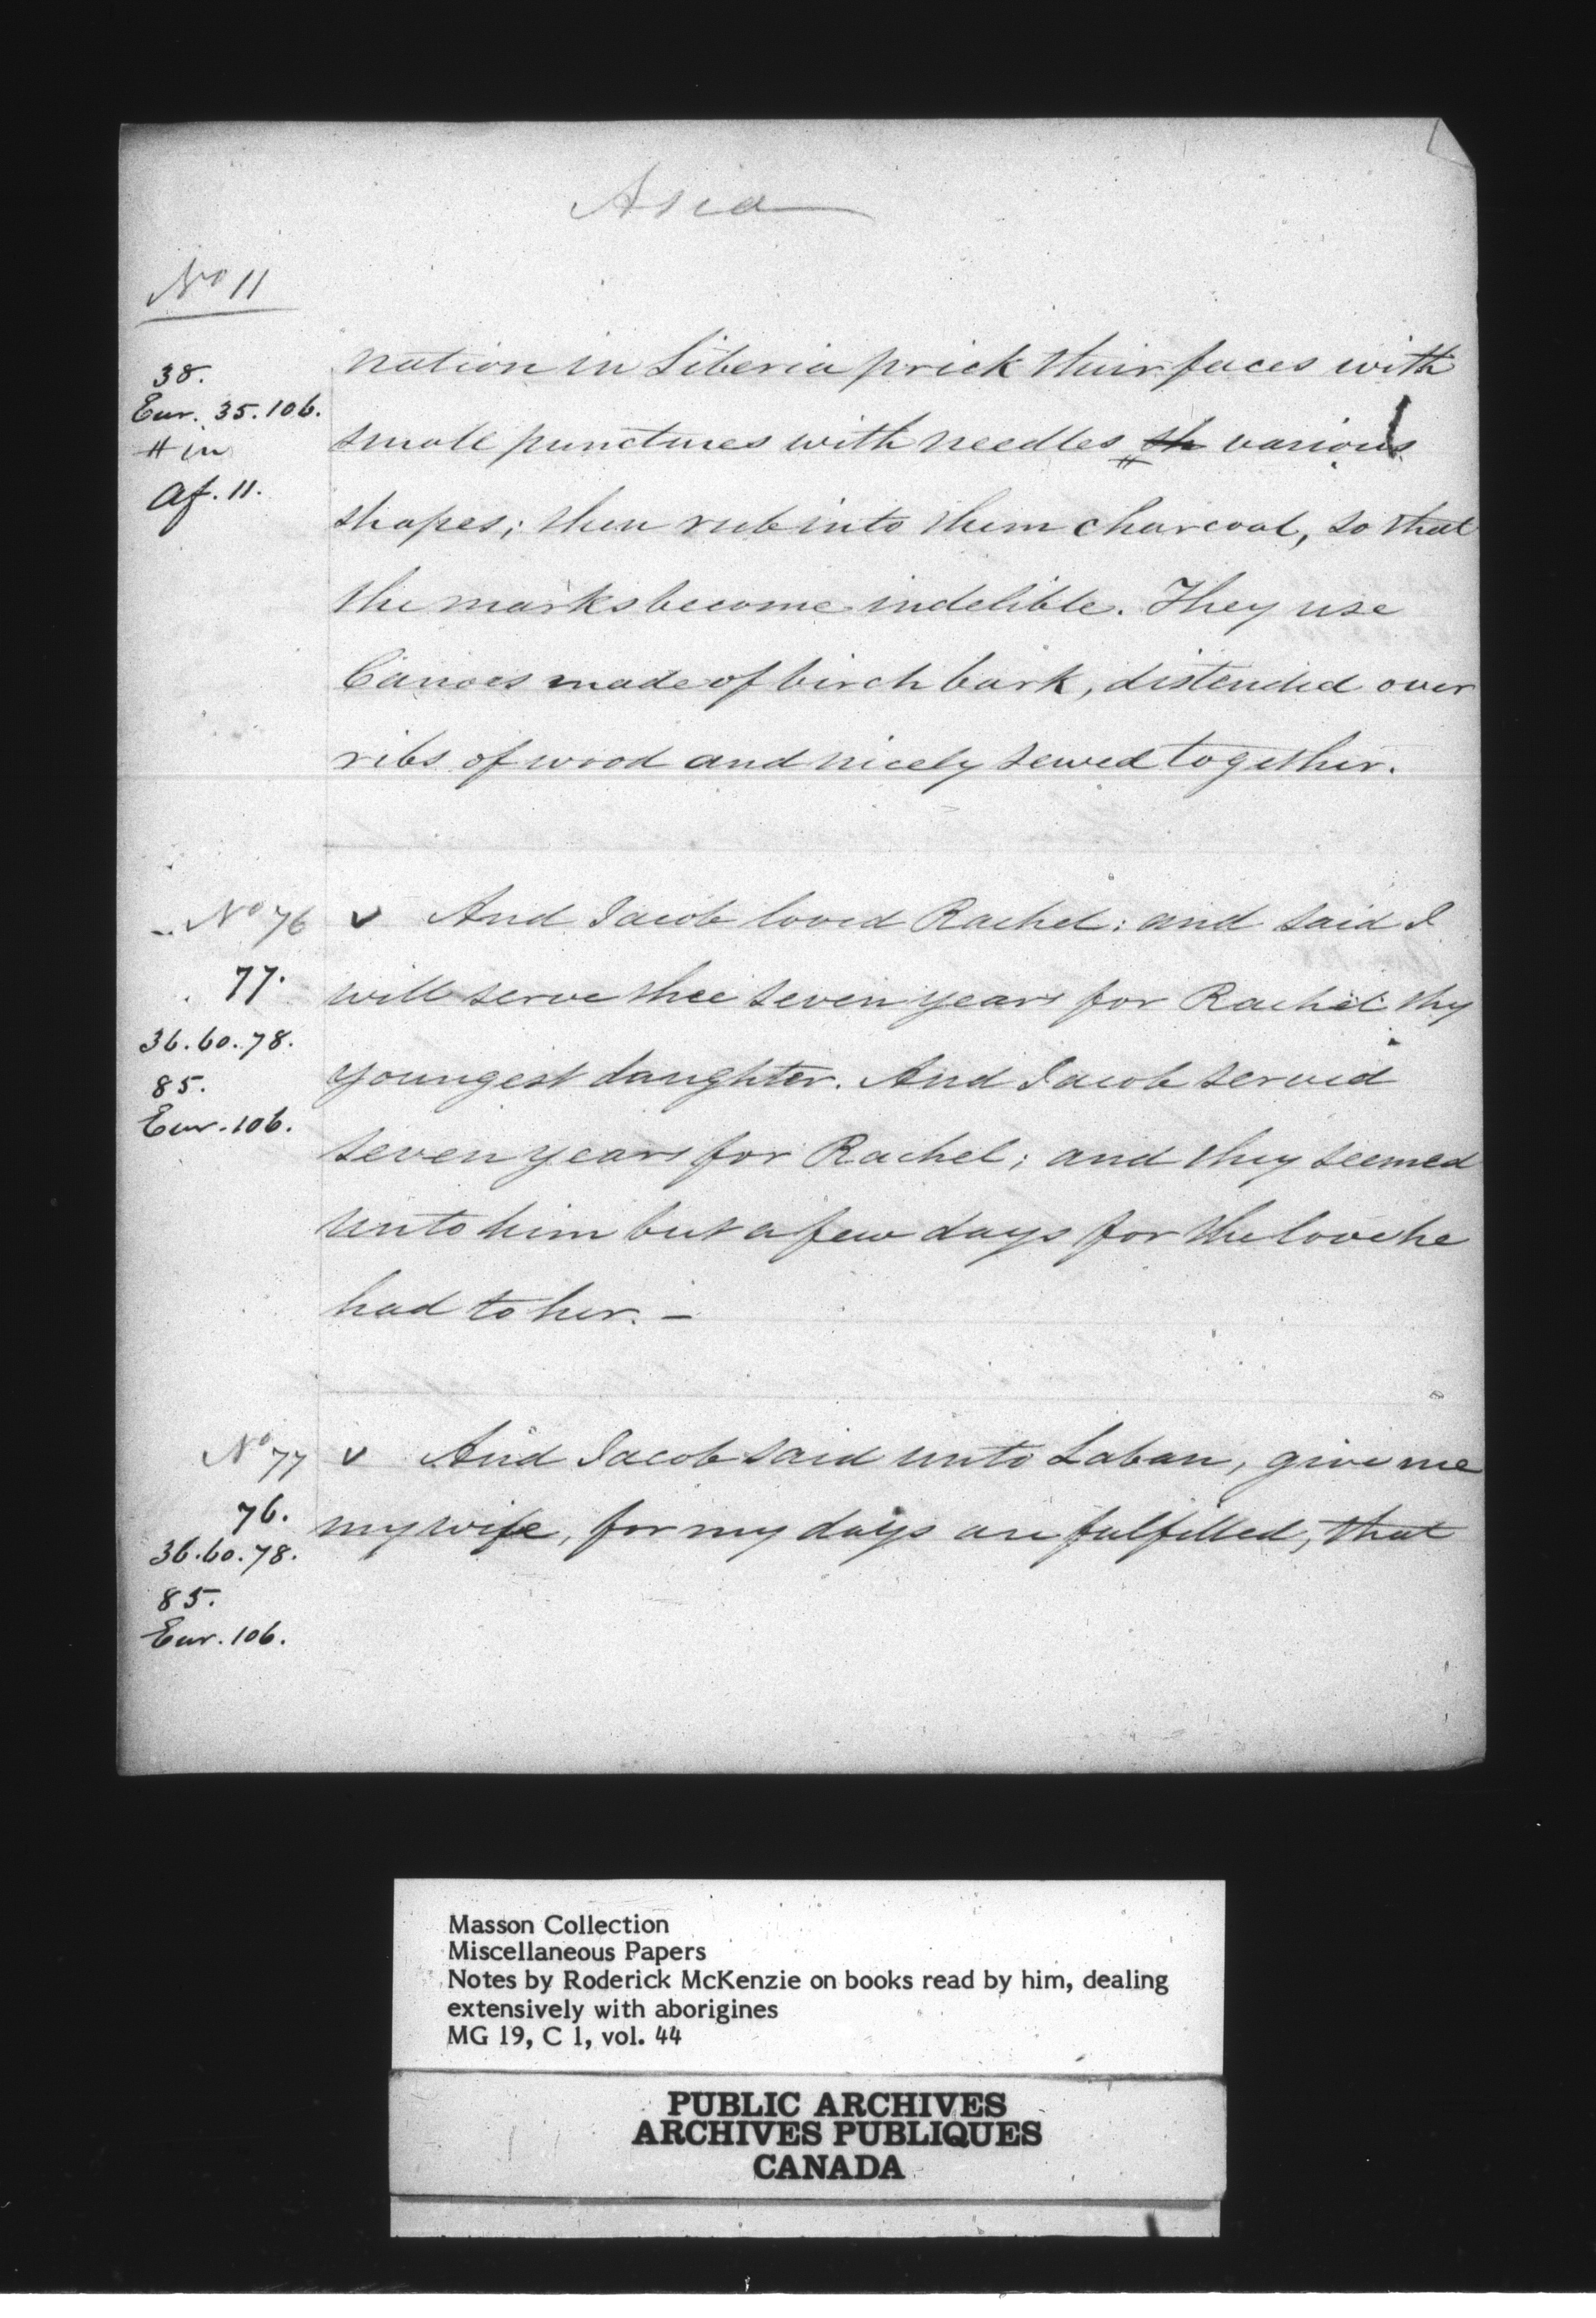 Asia
No 11
38.
Eur. 35.106.
# in
Af. 11.
nation in Siberia prick their faces with
small punctures with needles sh various
#
shapes; then rub into them charcoal, so that
the marks become indelible. They use
Canoes made of birch bark, distended over
ribs of wood and nicely sewed together.
No 76
77.
36.60.78.
85.
Eur. 106.
v And Jacob loved Rachel: and said I
will serve thee seven years for Rachel thy
youngest daughter. And Jacob served
seven years for Rachel; and they seemed
unto him but a few days for the love he
had to her. —
No 77
76.
36.60.78.
85.
Eur. 106.
v And Jacob said unto Laban, give me
my wife, for my days are fulfilled, that
Masson Collection
Miscellaneous Papers
Notes by Roderick McKenzie on books read by him, dealing
extensively with aborigines
MG 19, C 1, vol. 44
PUBLIC ARCHIVES
ARCHIVES PUBLIQUES
CANADA